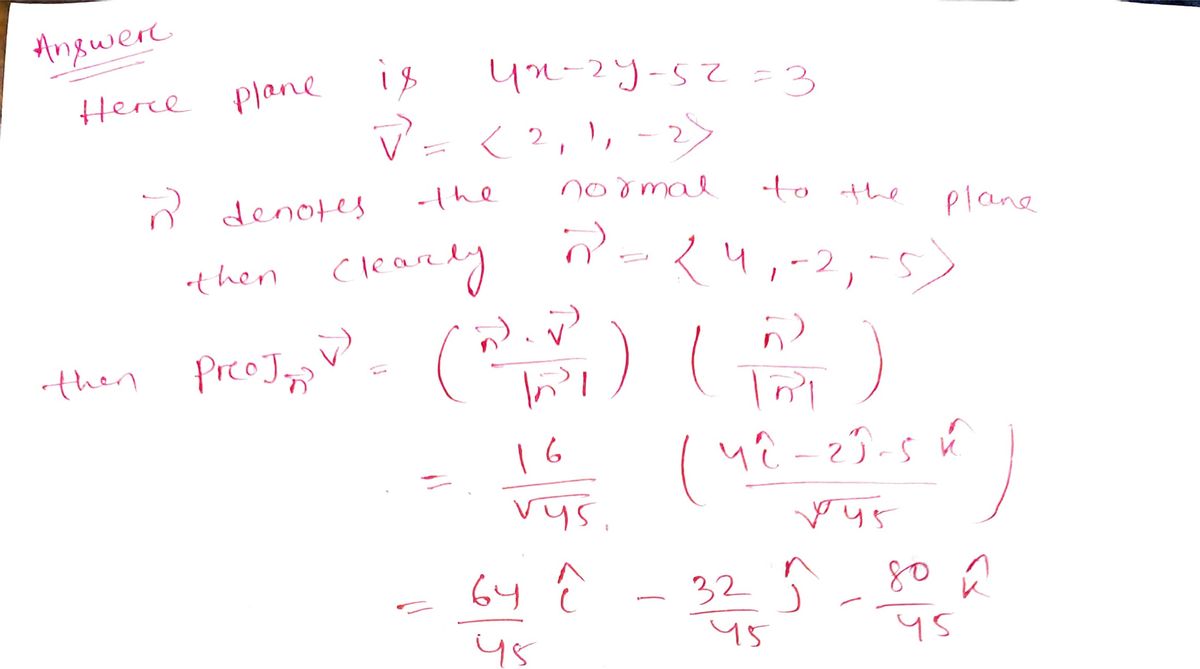 Answer
Here plane is 4x-2y-5z = 3
v⃗ = < 2, 1, -2>
n⃗ denotes the normal to the plane
then clearly n⃗ = < 4, -2, -5>
then Proj_n⃗ v⃗ = ( n⃗ . v⃗ / |n⃗| ) ( n⃗ / |n⃗| )
= 16 / √45 . ( 4î - 2ĵ - 5k̂ / √45 )
= 64/45 î - 32/45 ĵ - 80/45 k̂